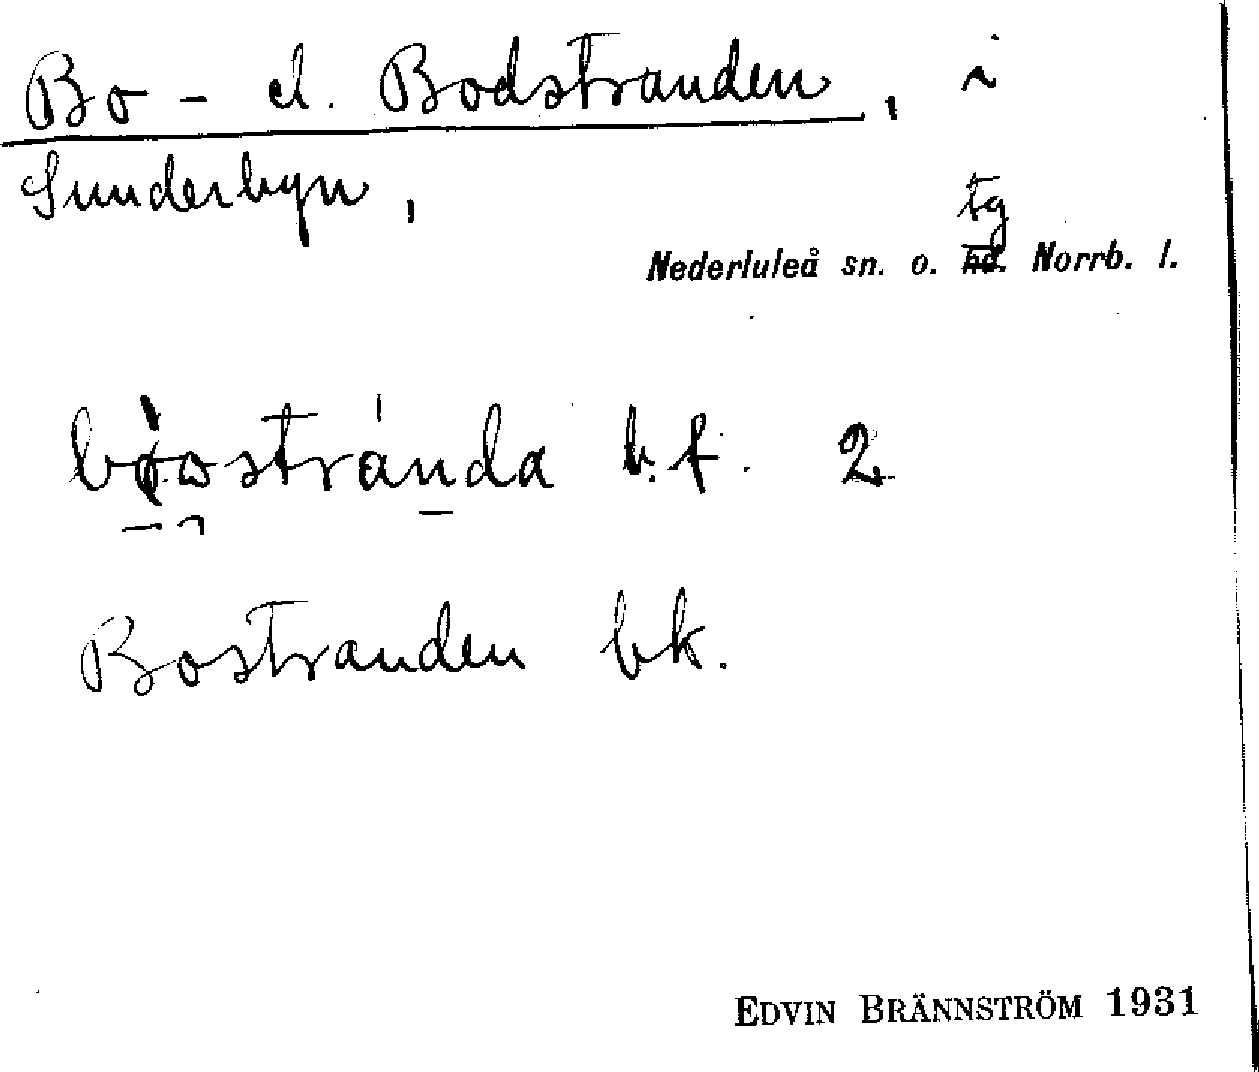 Bo- el. Bodstranden, i
Sunderbyn,
tg
Nederluleå sn. o. hd. Norrb. l.
b. f. 2
Bostranden bk.
EDVIN BRÄNNSTRÖM 1931